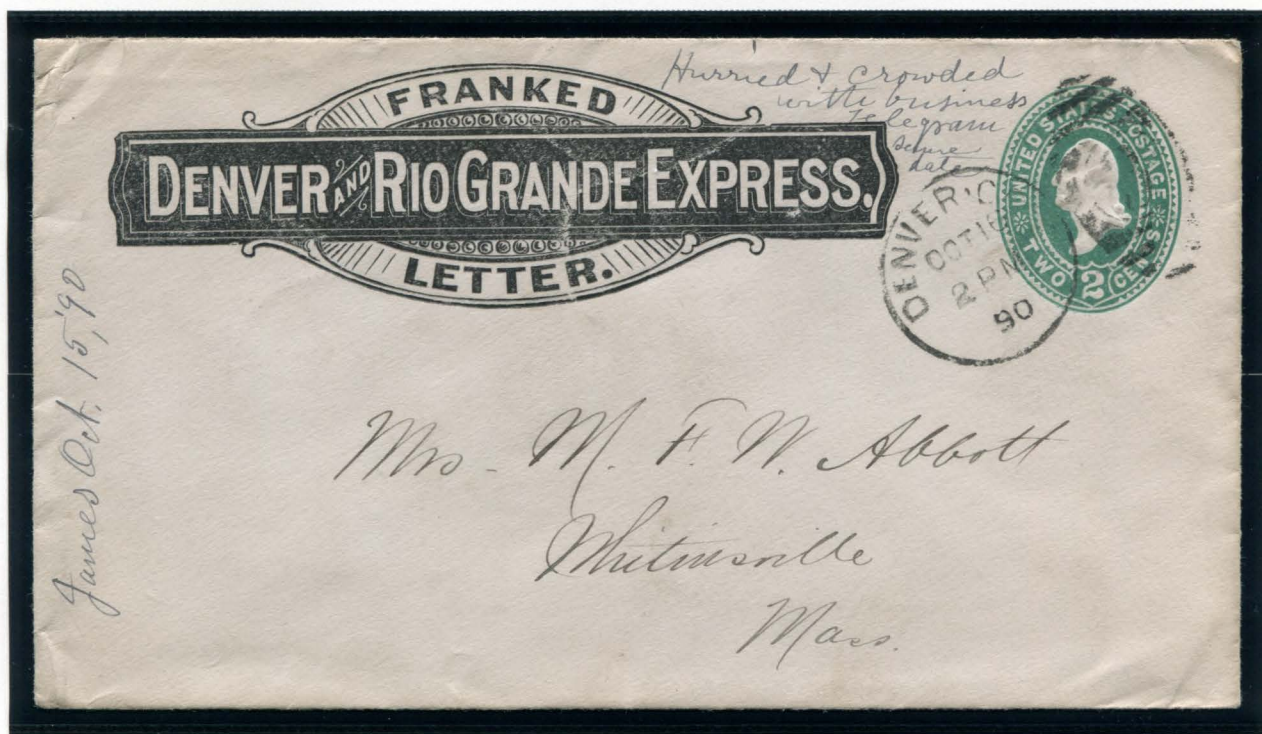 FRANKED
DENVER AND RIO GRANDE EXPRESS.
LETTER.
Hurried & crowded
with business
Telegram
same
date
UNITED STATES POSTAGE
TWO 2 CENTS
DENVER
OCT 16
2 PM
90
James Oct. 15, '90
Mrs - M. F. W. Abbott
Whitinsville
Mass.